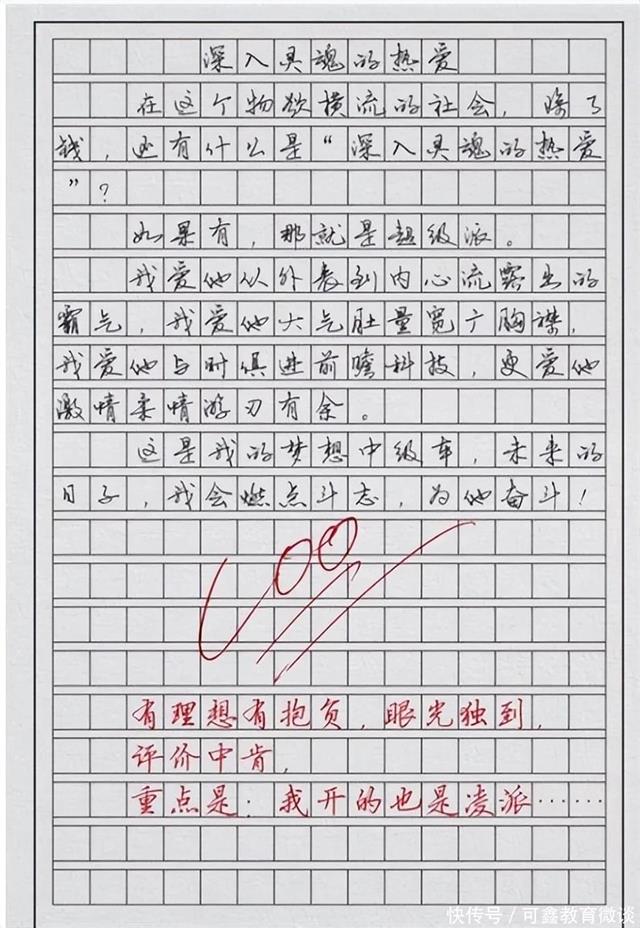 深入灵魂的热爱
在这个物欲横流的社会，除了
钱，还有什么是“深入灵魂的热爱
”？
如果有，那就是超级派。
我爱他从外表到内心流露出的
霸气，我爱他大气肚量宽广胸襟，
我爱他与时俱进前瞻科技，更爱他
激情柔情游刃有余。
这是我的梦想中级车，未来的
日子，我会燃点斗志，为他奋斗！
100
有理想有抱负，眼光独到，
评价中肯，
重点是：我开的也是凌派……
快传号／可鑫教育微谈